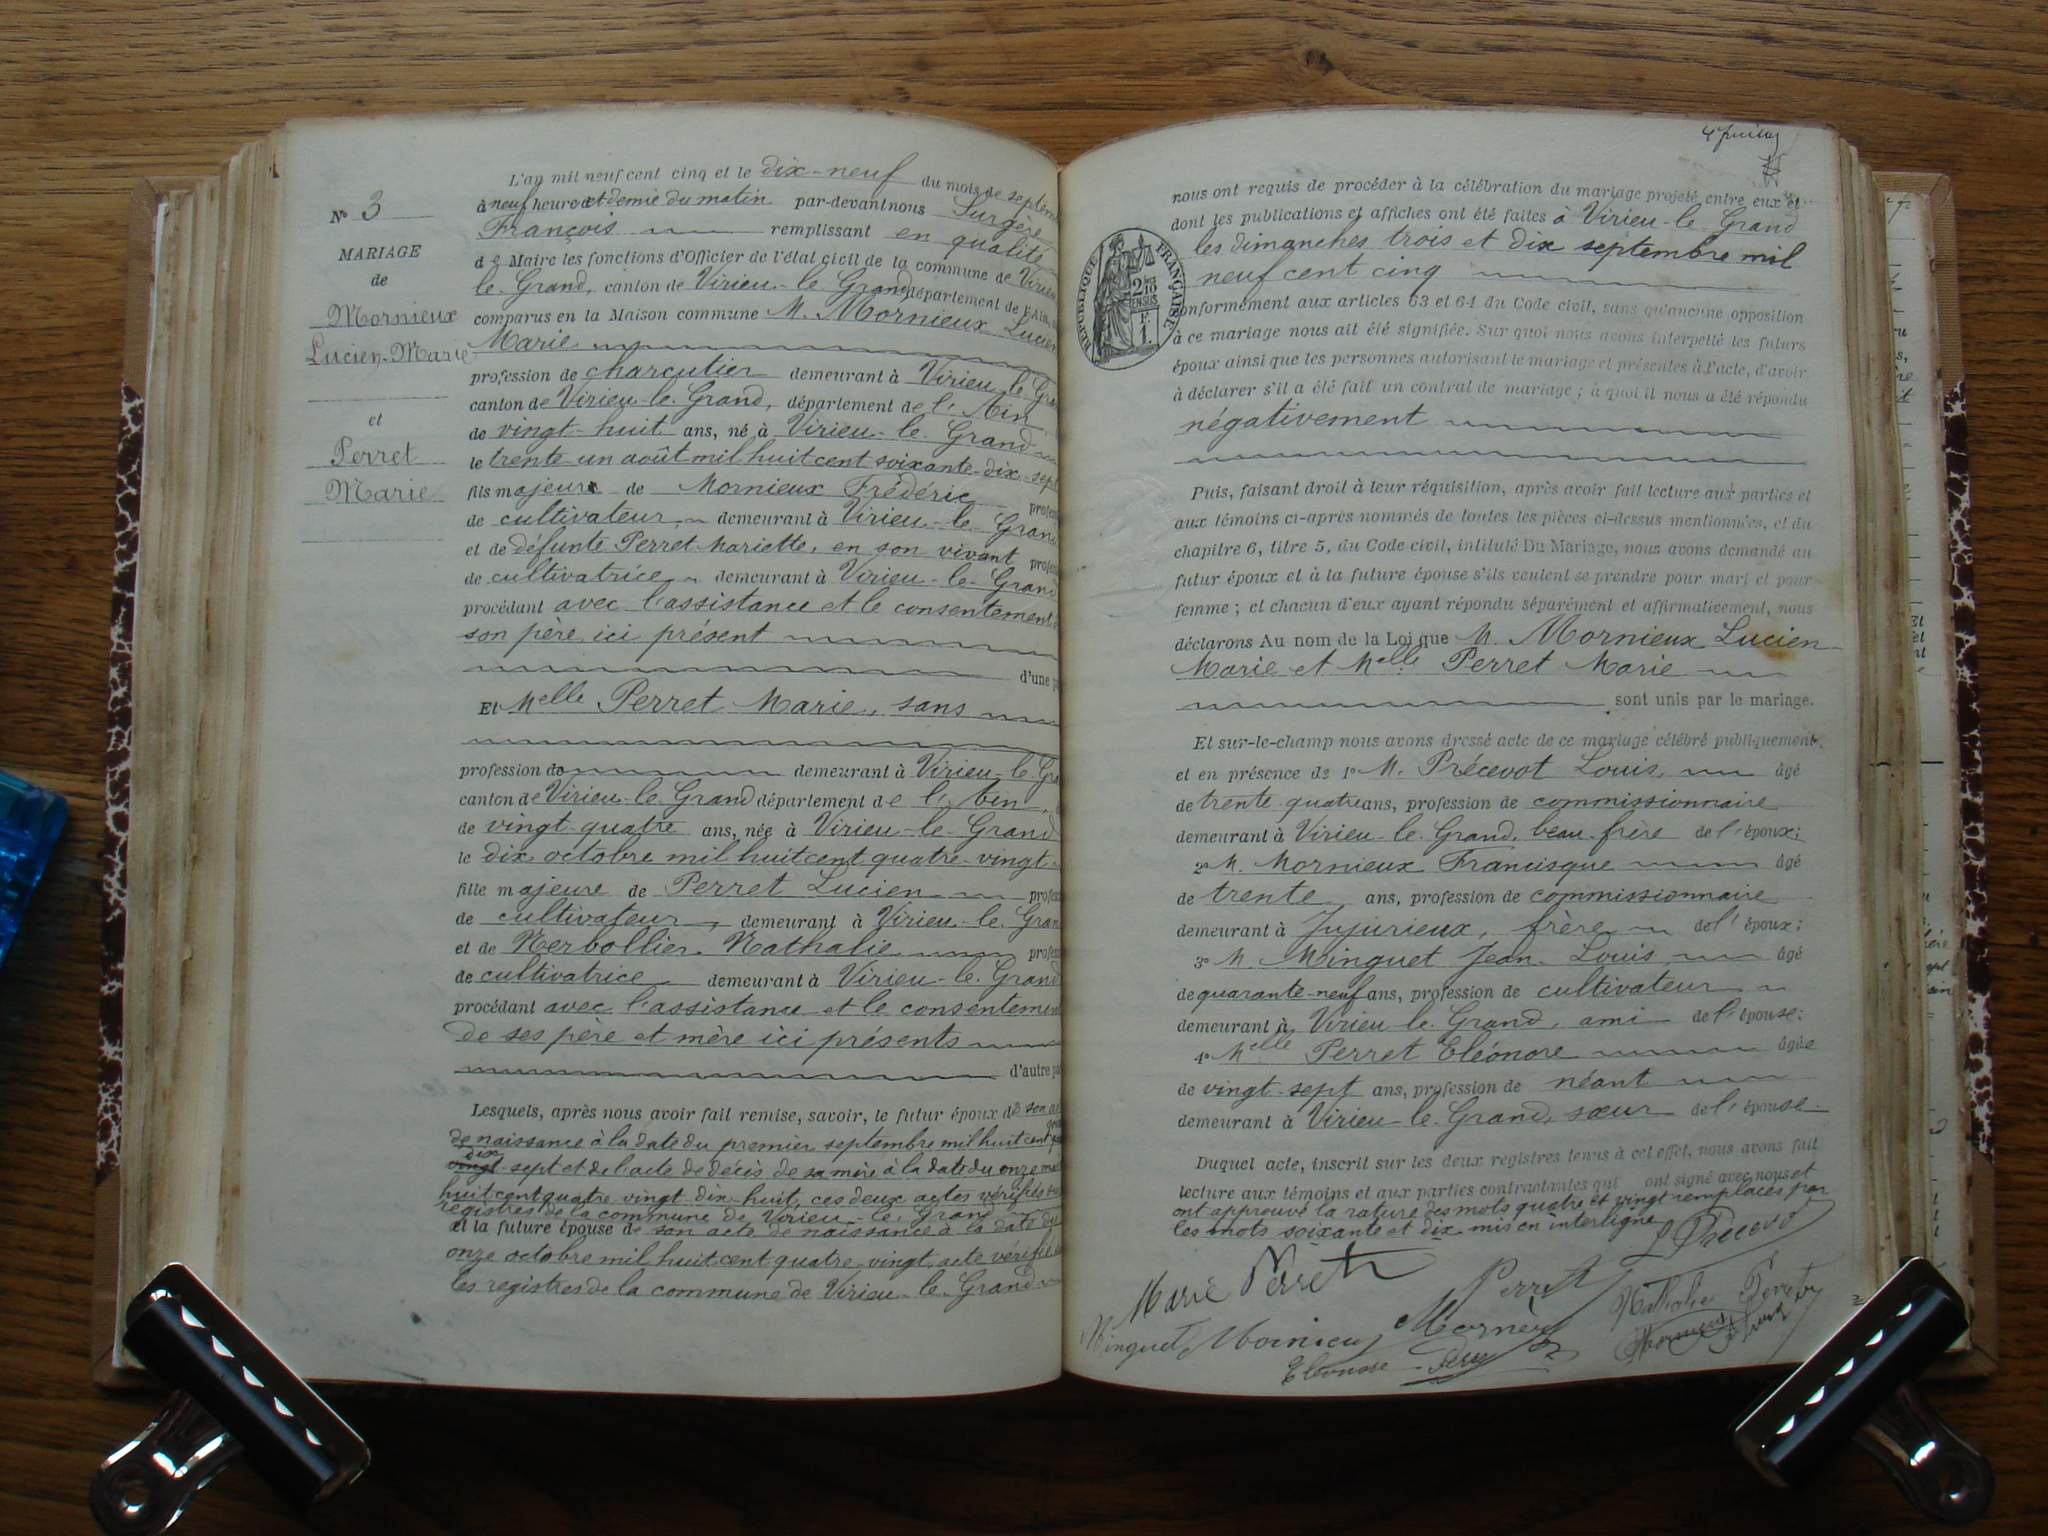 N° 3
MARIAGE
de
Mornieux
Lucien-Marie
et
Perret
Marie
L'an mil neuf cent cinq et le dix-neuf du mois de septem
à neuf heures et demie du matin par-devant nous Surgère
François remplissant en qualité
de Maire les fonctions d'Officier de l'état civil de la commune de Virieu
le-Grand, canton de Virieu-le-Grand département de l'Ain,
comparus en la Maison commune M. Mornieux Lucien
Marie
profession de charcutier demeurant à Virieu-le-Gra
canton de Virieu-le-Grand, département de l'Ain
de vingt-huit ans, né à Virieu-le-Grand
le trente-un août mil huit cent soixante-dix-sept
fils majeur de Mornieux Frédéric profes
de cultivateur demeurant à Virieu-le-Grand
et de défunte Perret Mariette, en son vivant profes
de cultivatrice demeurant à Virieu-le-Grand
procédant avec l'assistance et le consentement
son père ici présent
d'une pa
Et Melle Perret Marie, sans
profession de demeurant à Virieu-le-Gra
canton de Virieu-le-Grand département de l'Ain,
de vingt-quatre ans, née à Virieu-le-Grand
le dix octobre mil huit cent quatre-vingt
fille majeure de Perret Lucien profes
de cultivateur, demeurant à Virieu-le-Gran
et de Nerbollier Nathalie profes
de cultivatrice demeurant à Virieu-le-Grand
procédant avec l'assistance et le consentemen
de ses père et mère ici présents
d'autre pa
Lesquels, après nous avoir fait remise, savoir, le futur époux de son ac
de naissance à la date du premier septembre mil huit cent
dix
vingt-sept et de l'acte de décès de sa mère à la date du onze
huit cent quatre-vingt-dix-huit, ces deux actes vérifiés
registres de la commune de Virieu-le-Grand
et la future épouse de son acte de naissance à la date du
onze octobre mil huit cent quatre-vingt, acte vérifié
les registres de la commune de Virieu-le-Grand
nous ont requis de procéder à la célébration du mariage projeté entre eux et
dont les publications et affiches ont été faites à Virieu-le-Grand
les dimanches trois et dix septembre mil
neuf cent cinq
RÉPUBLIQUE FRANÇAISE
2/10 EN SUS
F. 1.
conformément aux articles 63 et 64 du Code civil, sans qu'aucune opposition
à ce mariage nous ait été signifiée. Sur quoi nous avons interpellé les futurs
époux ainsi que les personnes autorisant le mariage et présentes à l'acte, d'avoir
à déclarer s'il a été fait un contrat de mariage; à quoi il nous a été répondu
négativement
Puis, faisant droit à leur réquisition, après avoir fait lecture aux parties et
aux témoins ci-après nommés de toutes les pièces ci-dessus mentionnées, et du
chapitre 6, titre 5, du Code civil, intitulé Du Mariage, nous avons demandé au
futur époux et à la future épouse s'ils veulent se prendre pour mari et pour
femme; et chacun d'eux ayant répondu séparément et affirmativement, nous
déclarons Au nom de la Loi que M. Mornieux Lucien-
Marie et Melle Perret Marie
sont unis par le mariage.
Et sur-le-champ nous avons dressé acte de ce mariage célébré publiquement
et en présence de 1° M. Précevot Louis, âgé
de trente-quatre ans, profession de commissionnaire
demeurant à Virieu-le-Grand, beau-frère de l'époux;
2° M. Mornieux Francisque âgé
de trente ans, profession de commissionnaire
demeurant à Jujurieux, frère de l'époux;
3° M. Minguet Jean-Louis, âgé
de quarante-neuf ans, profession de cultivateur
demeurant à Virieu-le-Grand, ami de l'épouse;
4° Melle Perret Eléonore âgée
de vingt-sept ans, profession de néant
demeurant à Virieu-le-Grand, sœur de l'épouse.
Duquel acte, inscrit sur les deux registres tenus à cet effet, nous avons fait
lecture aux témoins et aux parties contractantes qui ont signé avec nous et
ont approuvé la rature des mots quatre et vingt remplacés par
les mots soixante et dix mis en interligne
Marie Perret
Perret
Nathalie Perret
Minguet
Mornieux
Eléonore Perret